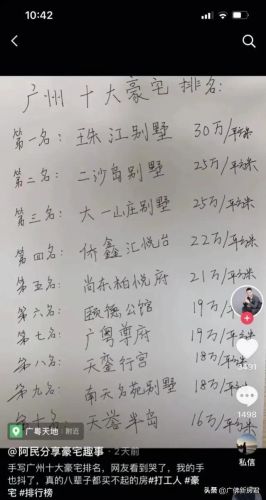 10:42
广州十大豪宅排名:
第一名: 珠江别墅 30万/平方米
第二名: 二沙岛别墅 25万/平方米
第三名: 大一山庄别墅 25万/平方米
第四名: 侨鑫汇悦台 22万/平方米
第五名: 尚东柏悦府 21万/平方米
第六名: 颐德公馆 19万/
第七名: 广粤尊府 19万/平方米
第八名: 天銮行宫 18万/平方米
第九名: 南天名苑别墅 18万/平方米
名: 天溋半岛 16万/平方米
8491
广粤天地 附近
@阿民分享豪宅趣事 · 2天前
手写广州十大豪宅排名,网友看到哭了,我的手
也抖了,真的八辈子都买不起的房#打工人 #豪
宅 #排行榜
私信
头条 @广佛新房君